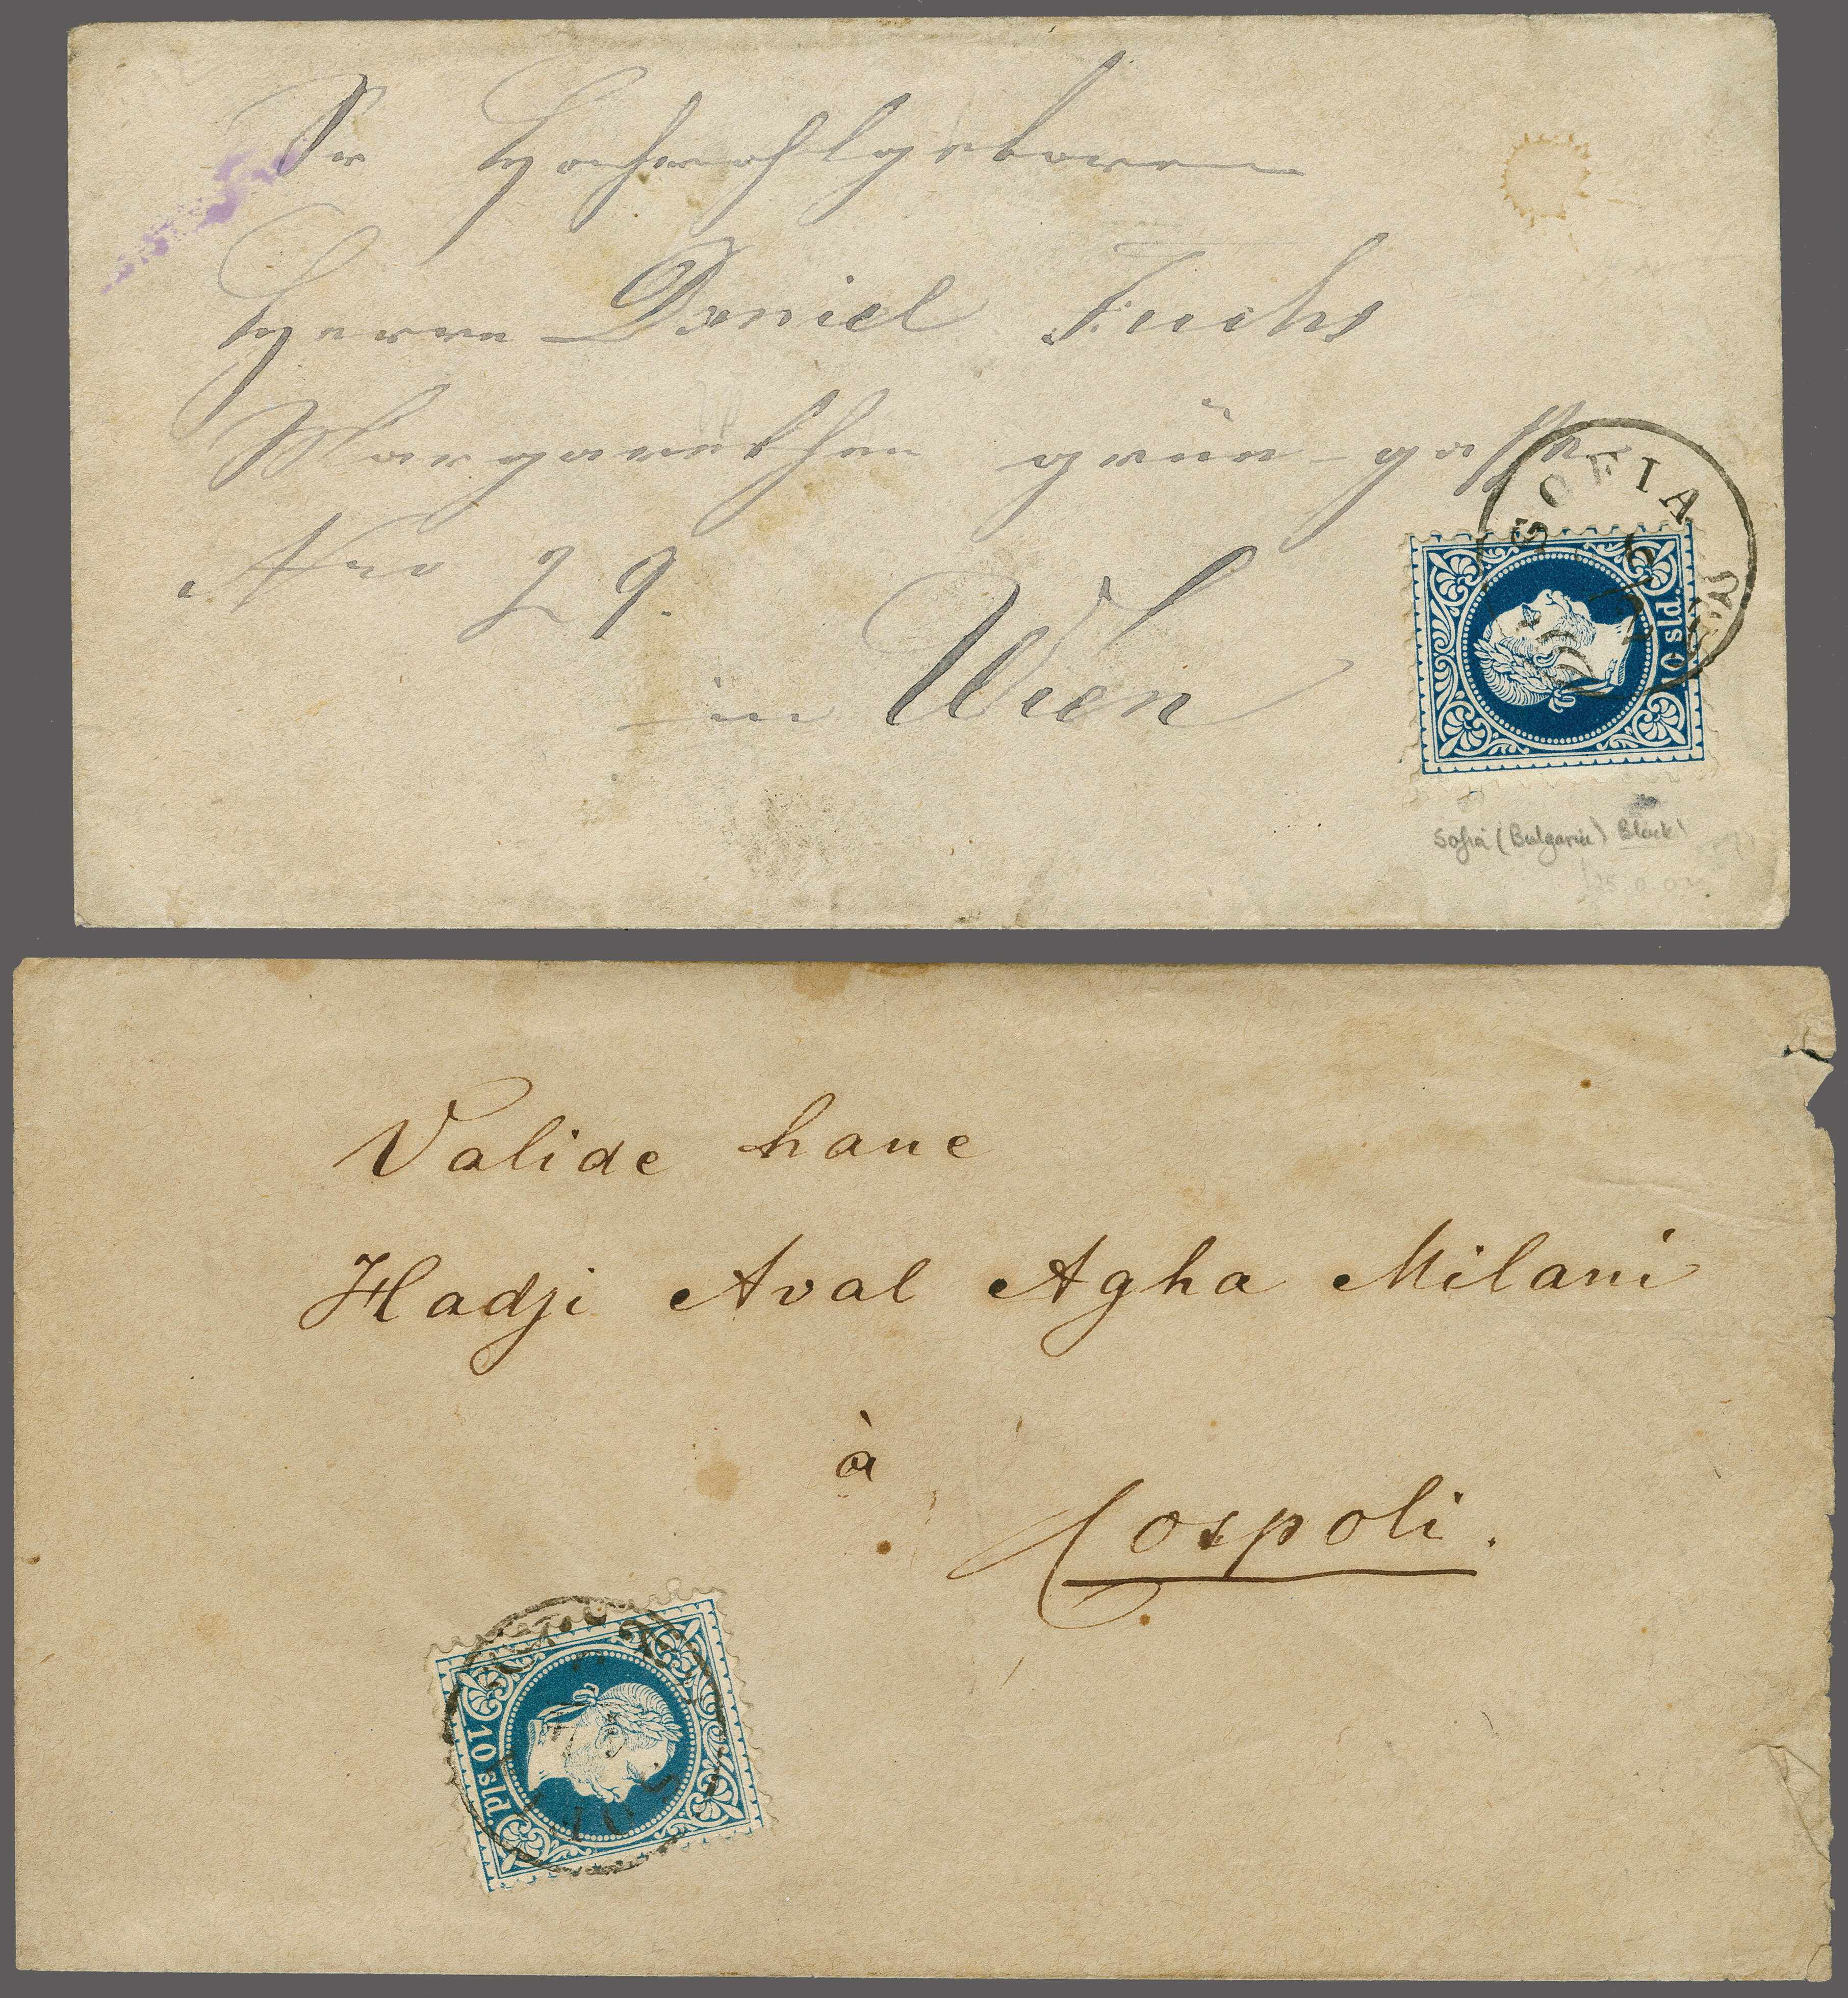 Sr Hochwohlgeboren
Herrn Daniel Fuchs
Margarethen grün-gasse
Nro 29.
in Wien
SOFIA
0 sld.
Sofia (Bulgaria) Black!
Valide hane
Hadji Aval Agha Milani
à
Cospoli.
10 sld.